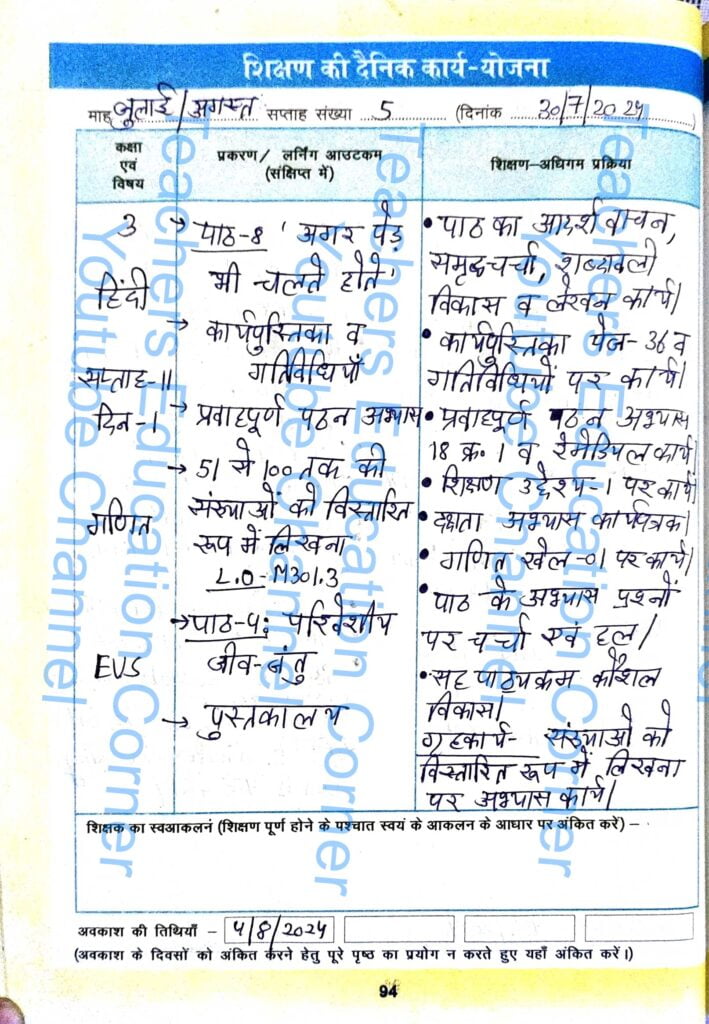 शिक्षण की दैनिक कार्य-योजना
माह जुलाई/अगस्त सप्ताह संख्या 5 (दिनांक 30/7/2024
कक्षा
एवं
विषय
प्रकरण/ लर्निंग आउटकम
(संक्षिप्त में)
शिक्षण-अधिगम प्रक्रिया
3
हिंदी
सप्ताह-11
दिन-1
गणित
EVS
→ पाठ-8 'अगर पेड़
भी चलते होते'
→ कार्यपुस्तिका व
गतिविधियाँ
→ प्रवाहपूर्ण पठन अभ्यास
→ 51 से 100 तक की
संख्याओं को विस्तारित
रूप में लिखना
L.O-M301.3
→ पाठ-5: परिवेशीय
जीव-जंतु
→ पुस्तकालय
• पाठ का आदर्श वाचन,
समृद्ध चर्चा, शब्दावली
विकास व लेखन कार्य।
• कार्यपुस्तिका पेज-36 व
गतिविधियों पर कार्य।
• प्रवाहपूर्ण पठन अभ्यास
18 क्र. 1 व रेमेडियल कार्य।
• शिक्षण उद्देश्य-1 पर कार्य
• दक्षता अभ्यास कार्यपत्रक।
• गणित खेल-01 पर कार्य।
• पाठ के अभ्यास प्रश्नों
पर चर्चा एवं हल।
• सह पाठ्यक्रम कौशल
विकास।
गृहकार्य- संख्याओं को
विस्तारित रूप में लिखना
पर अभ्यास कार्य।
शिक्षक का स्वआकलनं (शिक्षण पूर्ण होने के पश्चात स्वयं के आकलन के आधार पर अंकित करें) –
अवकाश की तिथियाँ – 4/8/2024
(अवकाश के दिवसों को अंकित करने हेतु पूरे पृष्ठ का प्रयोग न करते हुए यहाँ अंकित करें।)
94
Teachers Education Corner
Youtube Channel
Teachers Education Corner
Youtube Channel
Teachers Education Corner
Youtube Channel